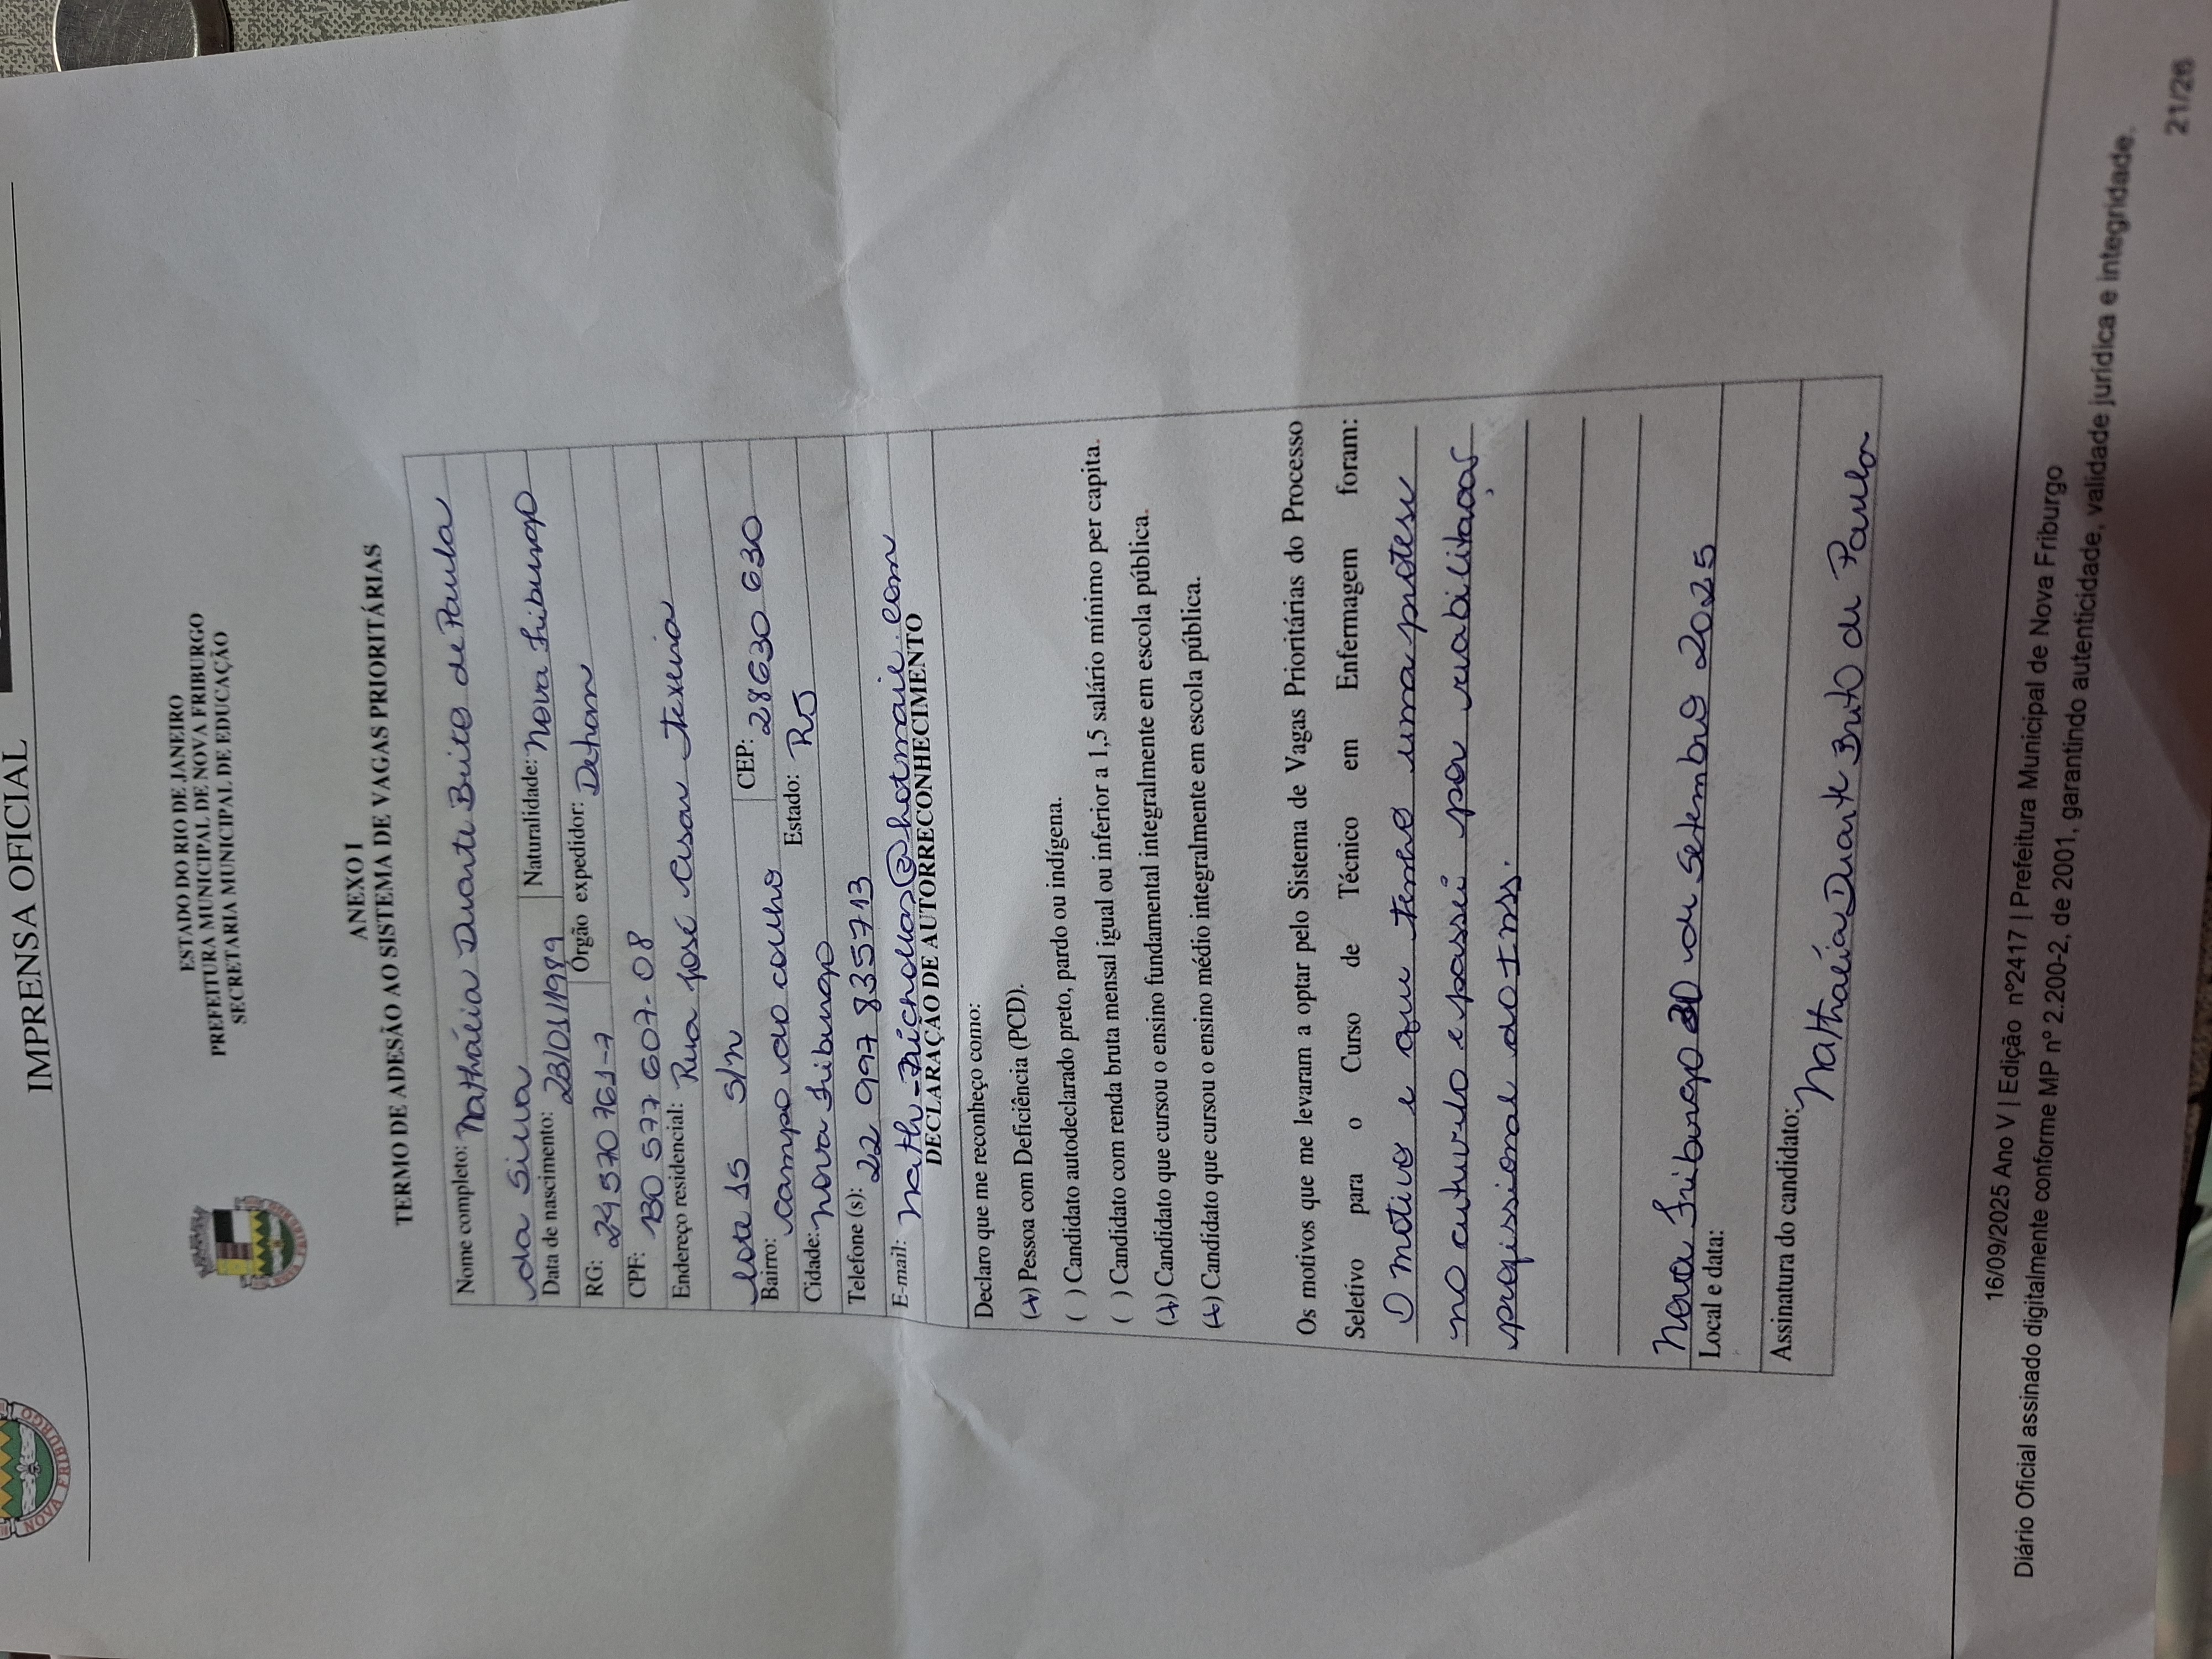 NOVA FRIBURGO
IMPRENSA OFICIAL
ESTADO DO RIO DE JANEIRO
PREFEITURA MUNICIPAL DE NOVA FRIBURGO
SECRETARIA MUNICIPAL DE EDUCAÇÃO
NOVA FRIBURGO
ANEXO I
TERMO DE ADESÃO AO SISTEMA DE VAGAS PRIORITÁRIAS
Nome completo: Nathália Duarte Brito de Paula
da Silva
Data de nascimento: 23/01/1989 Naturalidade: Nova Friburgo
RG: 24 570 761-7 Órgão expedidor: Detran
CPF: 130 577 607-08
Endereço residencial: Rua José Cesar Texeira
lote 15 S/n
Bairro: campo do coelho CEP: 28630 630
Cidade: Nova Friburgo Estado: RJ
Telefone (s): 22 997 835713
E-mail: Nath_Nichollas@hotmail.com
DECLARAÇÃO DE AUTORRECONHECIMENTO
Declaro que me reconheço como:
(x) Pessoa com Deficiência (PCD).
( ) Candidato autodeclarado preto, pardo ou indígena.
( ) Candidato com renda bruta mensal igual ou inferior a 1,5 salário mínimo per capita.
(x) Candidato que cursou o ensino fundamental integralmente em escola pública.
(x) Candidato que cursou o ensino médio integralmente em escola pública.
Os motivos que me levaram a optar pelo Sistema de Vagas Prioritárias do Processo
Seletivo para o Curso de Técnico em Enfermagem foram:
O motivo e que tenho uma protese
no cutuvelo e passei por reabilitaçao
profissional do Inss.
Nova Friburgo 30 de Setembro 2025
Local e data:
Assinatura do candidato: Nathalía Duarte Brito de Paula
16/09/2025 Ano V | Edição nº2417 | Prefeitura Municipal de Nova Friburgo
Diário Oficial assinado digitalmente conforme MP nº 2.200-2, de 2001, garantindo autenticidade, validade jurídica e integridade.
21/26